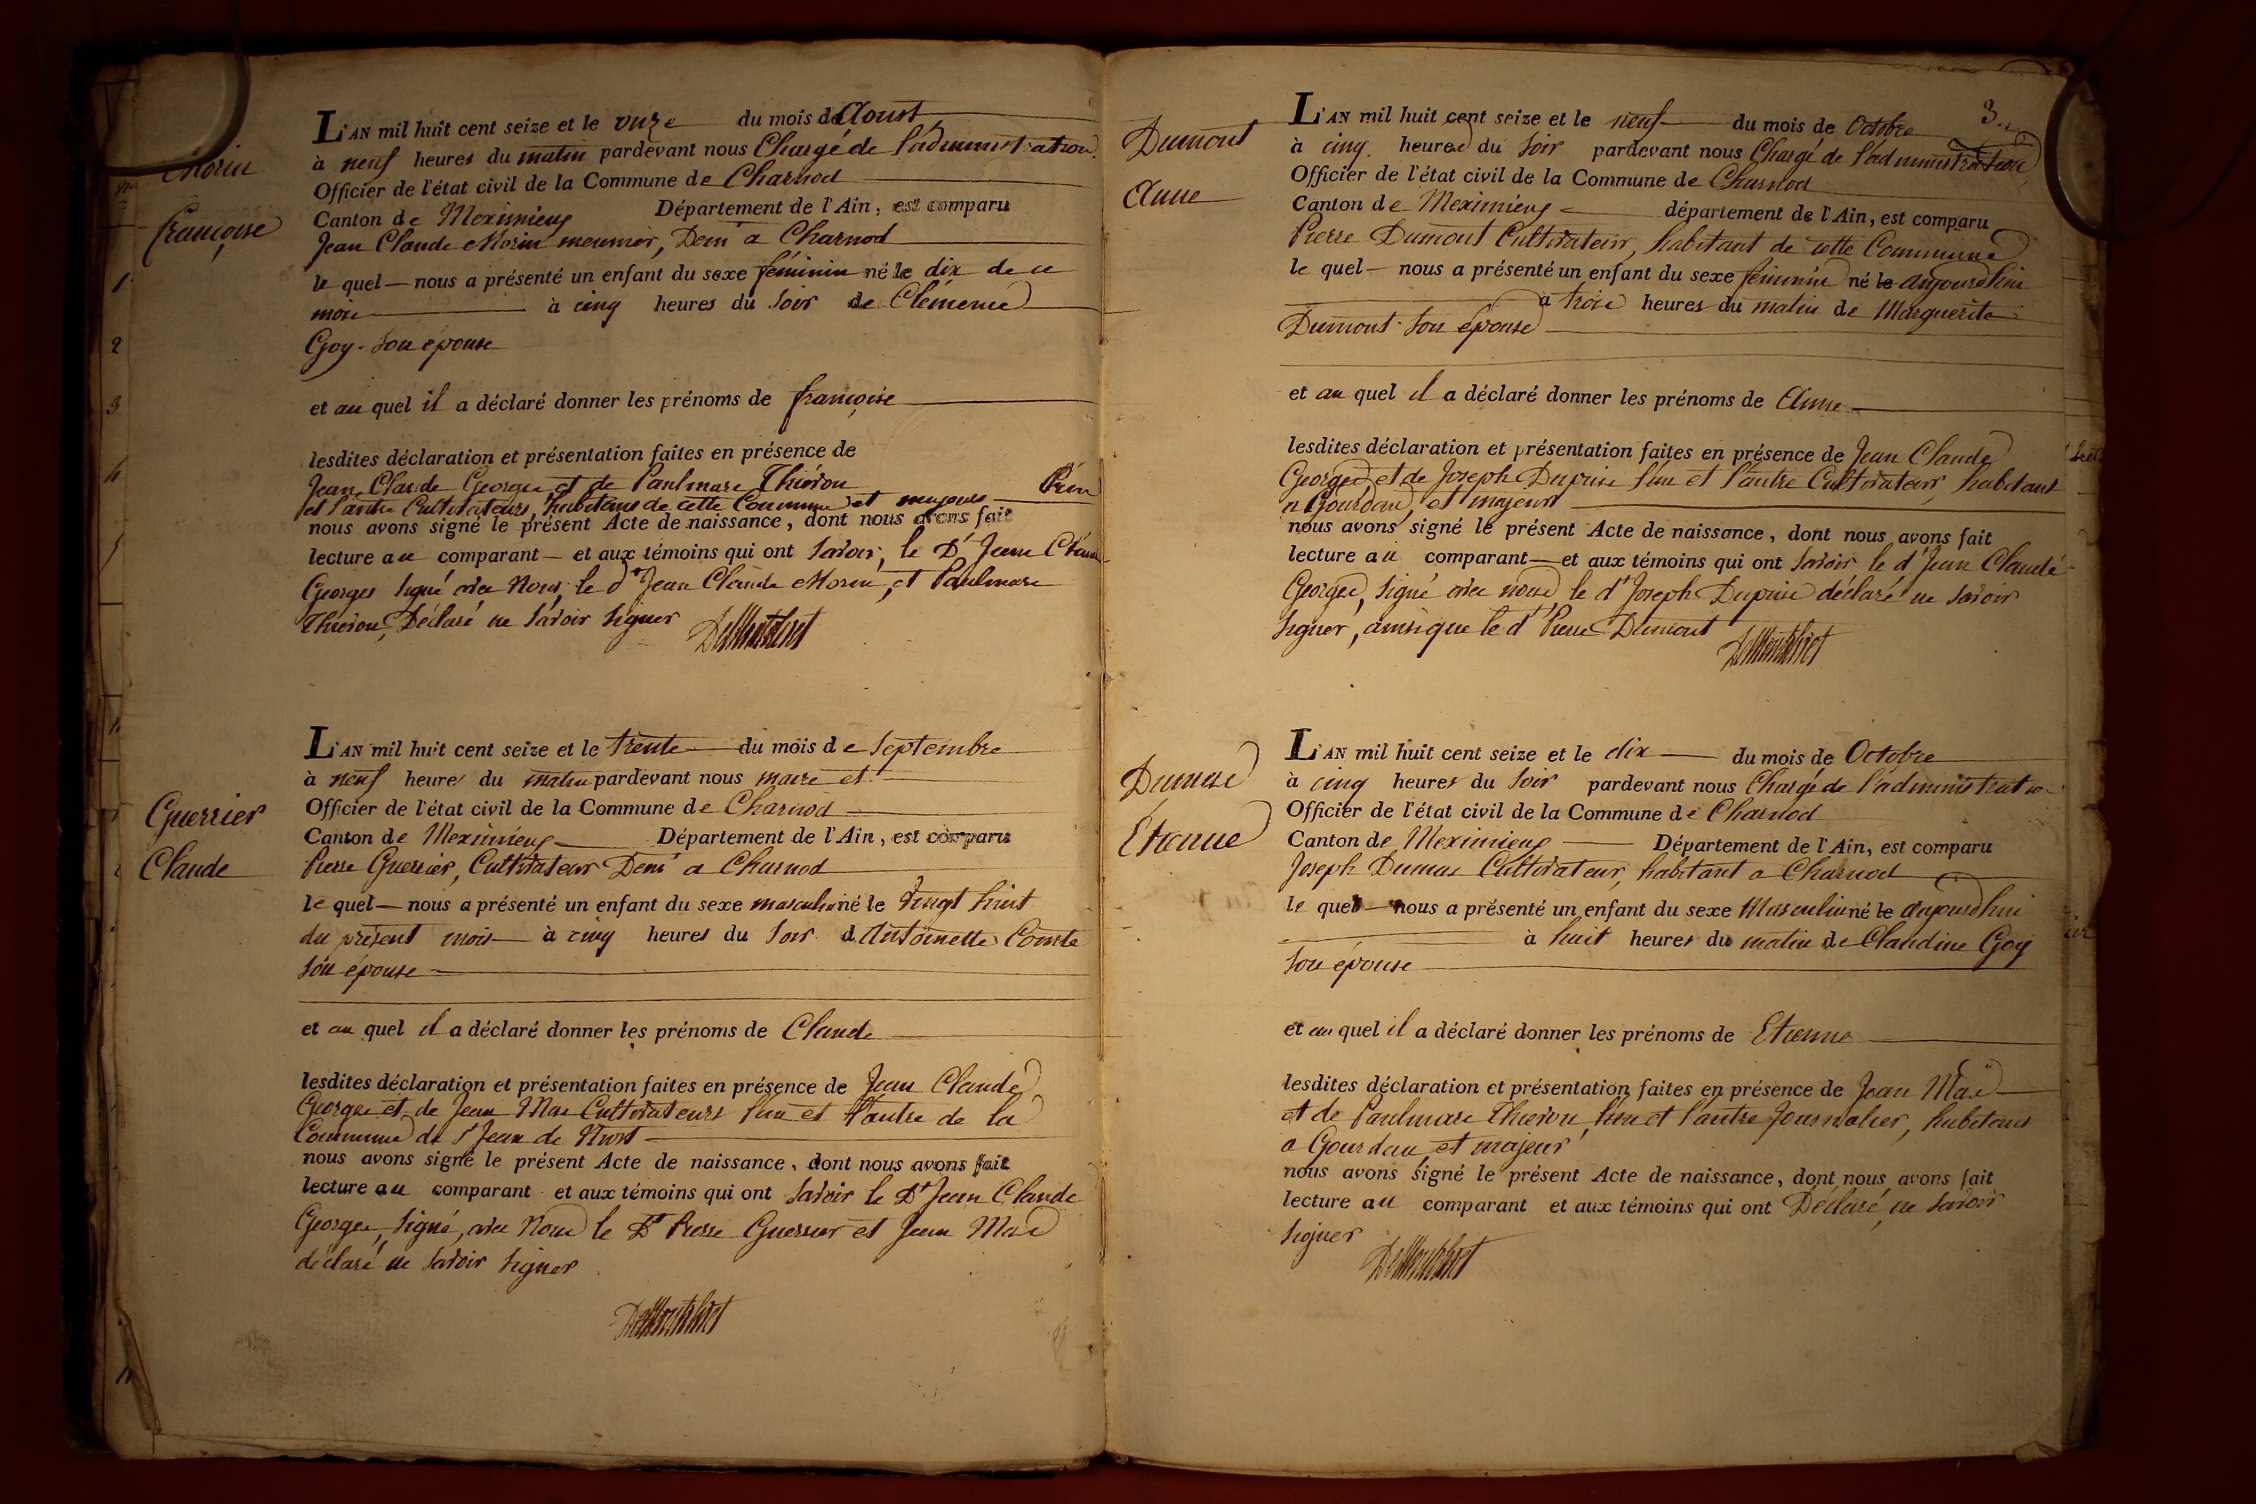 Morin
françoise
L'AN mil huit cent seize et le onze du mois de Aoust
à neuf heures du matin pardevant nous Chargé de l'administration
Officier de l'état civil de la Commune de Charnod
Canton de Meximieux Département de l'Ain, est comparu
Jean Claude Morin meunier, Dem a Charnod
le quel nous a présenté un enfant du sexe féminin né le dix de ce
mois à cinq heures du soir de Clémence
Goy son épouse
et au quel il a déclaré donner les prénoms de françoise
lesdites déclaration et présentation faites en présence de
Jean Claude George et de Paulmare Thiévon l'un
et l'autre Cultivateurs, habitans de cette Commune et majeurs
nous avons signé le présent Acte de naissance, dont nous avons fait
lecture au comparant et aux témoins qui ont savoir, le Dt Jean Claude
Georges signé avec Nous, le dt Jean Claude Morin, et Paulmare
Thiévon, Déclaré ne savoir signer
Guerrier
Claude
L'AN mil huit cent seize et le trente du mois de septembre
à neuf heures du matin pardevant nous maire et
Officier de l'état civil de la Commune de Charnod
Canton de Meximieux Département de l'Ain, est comparu
Pierre Guerrier, Cultivateur Dem a Charnod
le quel nous a présenté un enfant du sexe masculin né le vingt huit
du présent mois à cinq heures du soir d Antoinette Comte
son épouse
et au quel il a déclaré donner les prénoms de Claude
lesdites déclaration et présentation faites en présence de Jean Claude
George et de Jean Mas Cultivateurs l'un et l'autre de la
Commune de St Jean de Niost
nous avons signé le présent Acte de naissance, dont nous avons fait
lecture au comparant et aux témoins qui ont savoir le Dt Jean Claude
George, signé, avec Nous le Dt Pierre Guerrier et Jean Mas
déclaré ne savoir signer
3
Dumont
Anne
L'AN mil huit cent seize et le neuf du mois de Octobre
à cinq heures du soir pardevant nous Chargé de l'administration
Officier de l'état civil de la Commune de Charnod
Canton de Meximieux département de l'Ain, est comparu
Pierre Dumont Cultivateur, habitant de cette Commune
le quel nous a présenté un enfant du sexe féminin né le aujourdhui
à trois heures du matin de Marguerite
Dumont son épouse
et au quel il a déclaré donner les prénoms de Anne
lesdites déclaration et présentation faites en présence de Jean Claude
George et de Joseph Dupuis l'un et l'autre Cultivateurs, habitant
a Gourdan, et majeurs
nous avons signé le présent Acte de naissance, dont nous avons fait
lecture au comparant et aux témoins qui ont savoir le dt Jean Claude
George, signé avec nous le dt Joseph Dupuis déclaré ne savoir
signer, ainsi que le dt Pierre Dumont
Dumas
Étienne
L'AN mil huit cent seize et le dix du mois de Octobre
à cinq heures du soir pardevant nous Chargé de l'administratio
Officier de l'état civil de la Commune de Charnod
Canton de Meximieux Département de l'Ain, est comparu
Joseph Dumas Cultivateur, habitant a Charnod
le quel nous a présenté un enfant du sexe Masculin né le aujourdhui
à huit heures du matin de Claudine Goy
son épouse
et au quel il a déclaré donner les prénoms de Etienne
lesdites déclaration et présentation faites en présence de Jean Mas
et de Paulmare Thievon l'un et l'autre Journalier, habitans
a Gourdan, et majeur
nous avons signé le présent Acte de naissance, dont nous avons fait
lecture au comparant et aux témoins qui ont Déclaré, ne savoir
signer